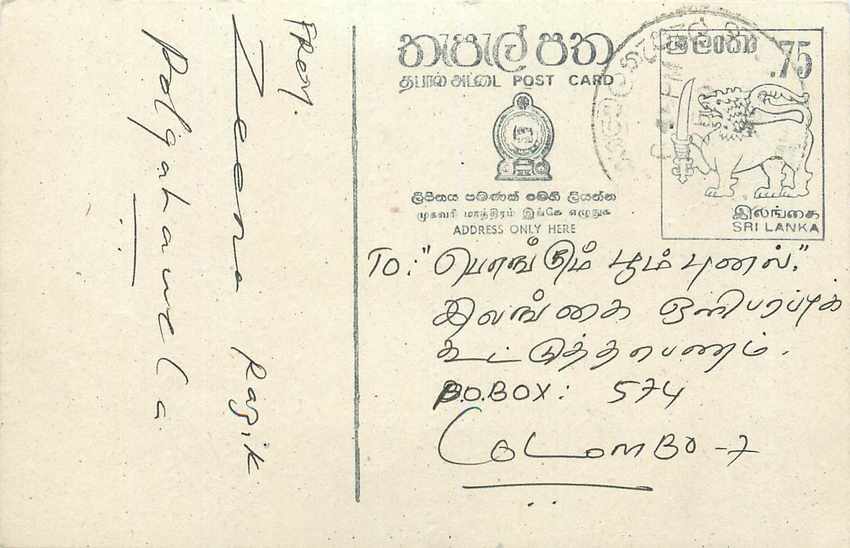 FROM.
Zeena Razik
Polgahawela
තැපැල් පත
தபால் அட்டை POST CARD
ලිපිනය පමණක් මෙහි ලියන්න
முகவரி மாத்திரம் இங்கே எழுதுக
ADDRESS ONLY HERE
ශ්‍රී ලංකා
.75
இலங்கை
SRI LANKA
To: "பொங்கும் பூம் புனல்."
இலங்கை ஒலிபரப்புக்
கூட்டுத்தாபனம்.
P.O.BOX: 574
COLOMBO-7